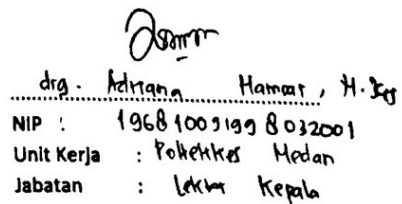 drg. Adriana Hamsar, M.Kes
NIP : 196810091998032001
Unit Kerja : Poltekkes Medan
Jabatan : Lektor Kepala